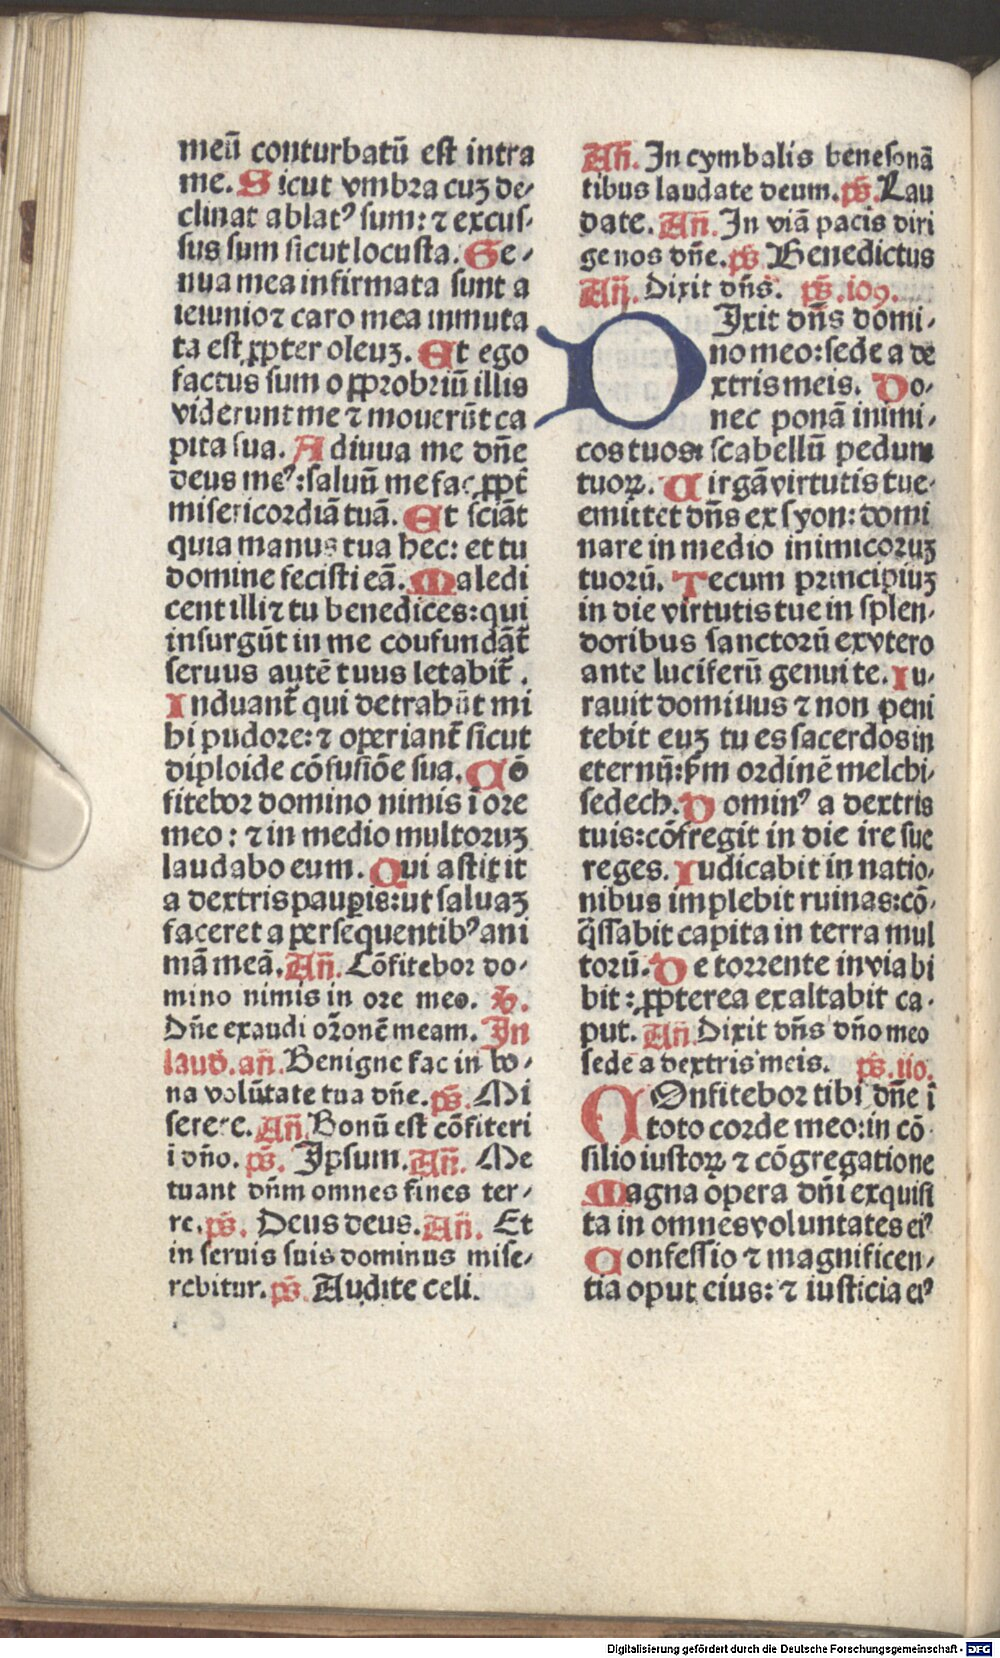 meū conturbatū est intra
me. Sicut vmbra cuȝ de-
clinat ablatꝰ sum: ⁊ excus-
sus sum sicut locusta. Ge-
nua mea infirmata sunt a
ieiunio ⁊ caro mea immuta
ta est ꝓpter oleuȝ. Et ego
factus sum opprobriū illis
viderunt me ⁊ mouerūt ca
pita sua. Adiuua me dn̄e
deus meꝰ: saluū me fac ꝓpt̄
misericordiā tuā. Et sciāt
quia manus tua hec: et tu
domine fecisti eā. Maledi
cent illi ⁊ tu benedices: qui
insurgūt in me coufundāt̄
seruus autē tuus letabit̄.
Induant̄ qui detrahūt mi
hi pudore: ⁊ operiant̄ sicut
diploide cōfusiōe sua. Cō
fitebor domino nimis ī ore
meo: ⁊ in medio multoruȝ
laudabo eum. Qui astitit
a dextris pauꝑis: ut saluaȝ
faceret a persequentibꝰ ani
mā meā. An̄. Cōfitebor do-
mino nimis in ore meo. ℣.
Dn̄e exaudi or̄onē meam. In
laud. an̄. Benigne fac in bo-
na volūtate tua dn̄e. ps̄. Mi
serere. An̄. Bonū est cōfiteri
i dn̄o. ps̄. Ipsum. An̄. Me
tuant dn̄m omnes fines ter-
re. ps̄. Deus deus. An̄. Et
in seruis suis dominus mise-
rebitur. ps̄. Audite celi.
An̄. In cymbalis benesonā
tibus laudate deum. ps̄. Lau
date. An̄. In viā pacis diri
ge nos dn̄e. ps̄. Benedictus
An̄. Dixit dn̄s. ps̄. 109.
DIxit dn̄s domi-
no meo: sede a de
xtris meis. Do-
nec ponā inimi-
cos tuos: scabellū pedum
tuoꝝ. Uirgā virtutis tue
emittet dn̄s ex syon: domi
nare in medio inimicoruȝ
tuorū. Tecum principiuȝ
in die virtutis tue in splen-
doribus sanctorū ex vtero
ante luciferū genui te. Iu-
rauit dominus ⁊ non peni
tebit euȝ tu es sacerdos in
eternū: ẜm ordinē melchi-
sedech. Dominꝰ a dextris
tuis: cōfregit in die ire sue
reges. Iudicabit in natio-
nibus implebit ruinas: cō-
q̄ssabit capita in terra mul
torū. De torrente in via bi
bit: ꝓpterea exaltabit ca-
put. An̄. Dixit dn̄s dn̄o meo
sede a dextris meis. ps̄. 110.
COnfitebor tibi dn̄e ī
toto corde meo: in cō
silio iustoꝝ ⁊ cōgregatione
Magna opera dn̄i exquisi
ta in omnes voluntates eiꝰ
Confessio ⁊ magnificen-
tia oput eius: ⁊ iusticia eiꝰ
Digitalisierung gefördert durch die Deutsche Forschungsgemeinschaft - DFG